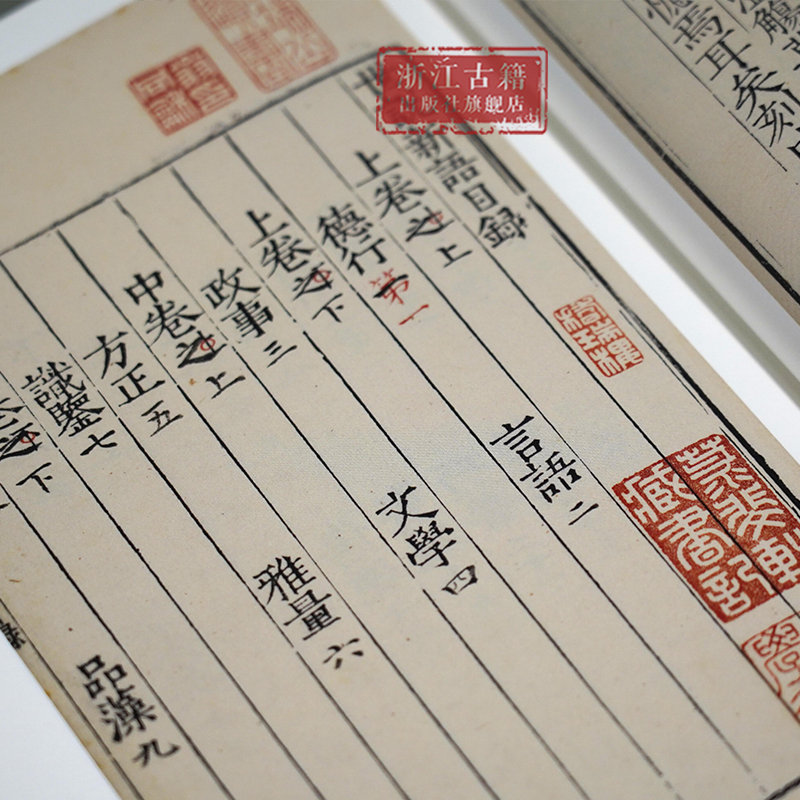 浙江古籍
出版社旗舰店
焉耳矣刻
新語目錄
上卷之上
德行第一 言語二
上卷之下
政事三 文學四
中卷之上
方正五 雅量六
識鑒七
卷之下
品藻九
藏書記